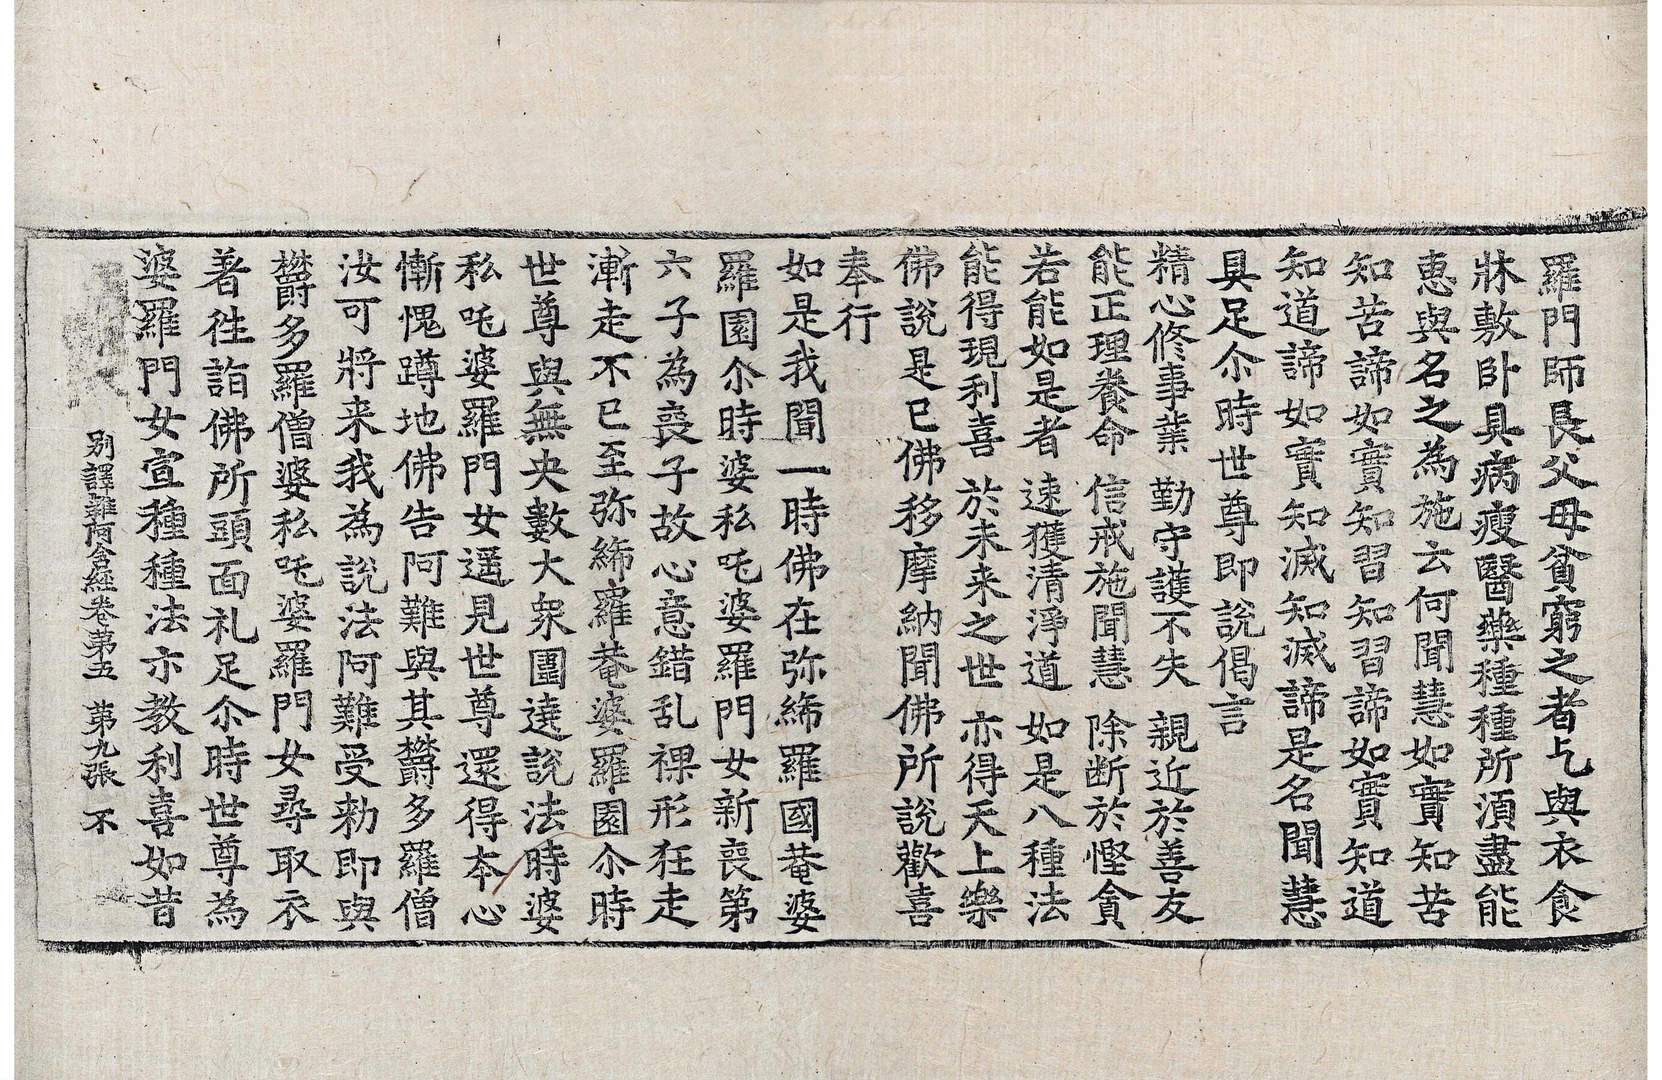 羅門師長父母貧窮之者乞與衣食
牀敷卧具病瘦醫藥種種所湏盡能
惠與名之為施云何聞慧如實知苦
知苦諦如實知習知習諦如實知道
知道諦如實知滅知滅諦是名聞慧
具足尒時世尊即說偈言
精心修事業 勤守護不失 親近於善友
能正理養命 信戒施聞慧 除断於慳貪
若能如是者 速獲清淨道 如是八種法
能得現利喜 於未来之世 亦得天上樂
佛說是已佛移摩納聞佛所說歡喜
奉行
如是我聞一時佛在弥絺羅國菴婆
羅園尒時婆私吒婆羅門女新喪第
六子為喪子故心意錯乱裸形狂走
漸走不已至弥絺羅菴婆羅園尒時
世尊與無央數大衆圍遶說法時婆
私吒婆羅門女遥見世尊還得本心
慚愧蹲地佛告阿難與其欝多羅僧
汝可將来我為說法阿難受勑即與
欝多羅僧婆私吒婆羅門女尋取衣
著徃詣佛所頭面礼足尒時世尊為
婆羅門女宣種種法示教利喜如昔
别譯雜阿含經卷第五 第九張 不